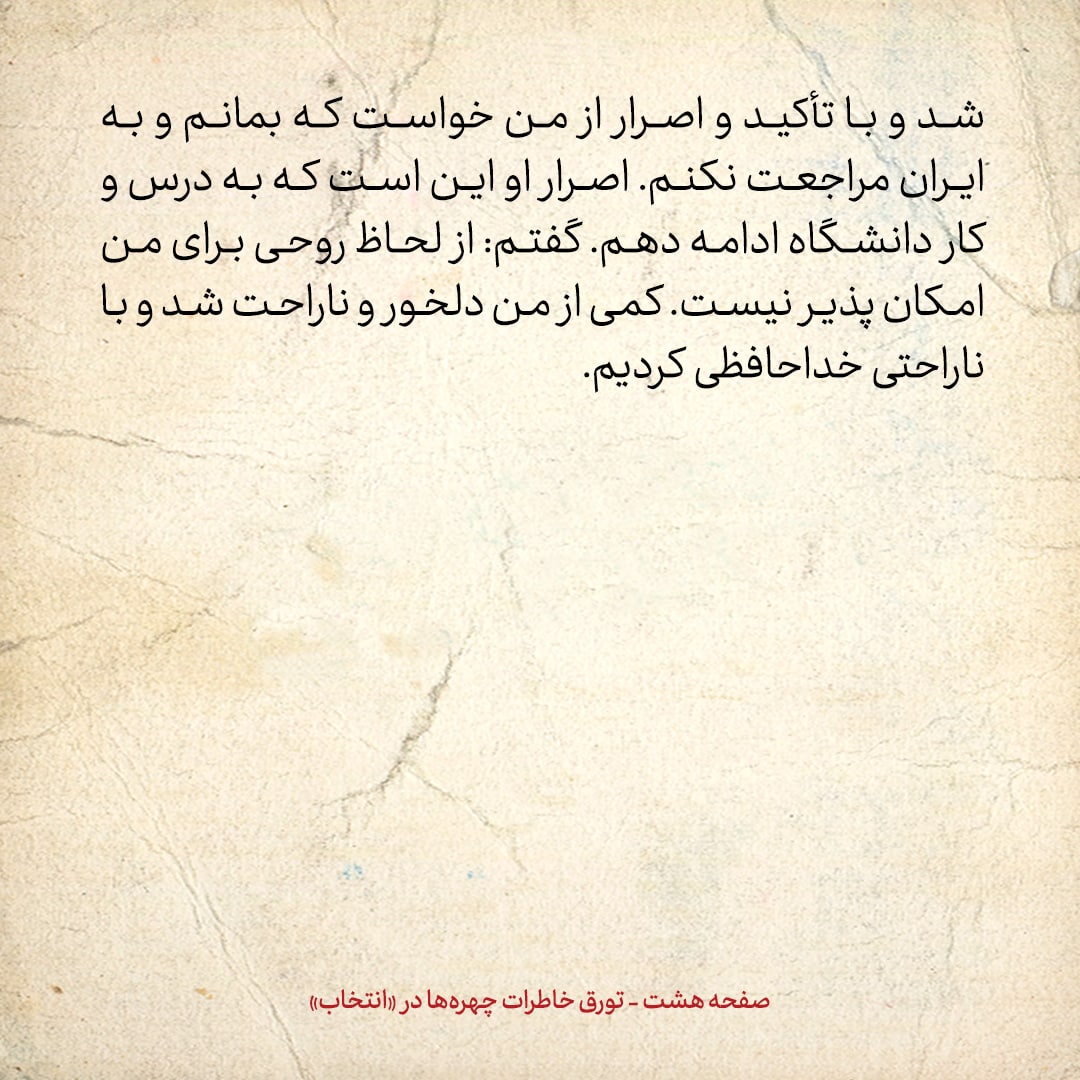 شد و با تأکید و اصرار از من خواست که بمانم و به
ایران مراجعت نکنم. اصرار او این است که به درس و
کار دانشگاه ادامه دهم. گفتم: از لحاظ روحی برای من
امکان پذیر نیست. کمی از من دلخور و ناراحت شد و با
ناراحتی خداحافظی کردیم.
صفحه هشت - تورق خاطرات چهره‌ها در «انتخاب»